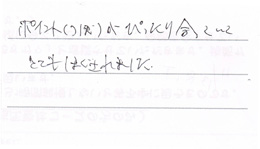 ポイント(つぼ)がぴったり合っていて
とてもほぐされました